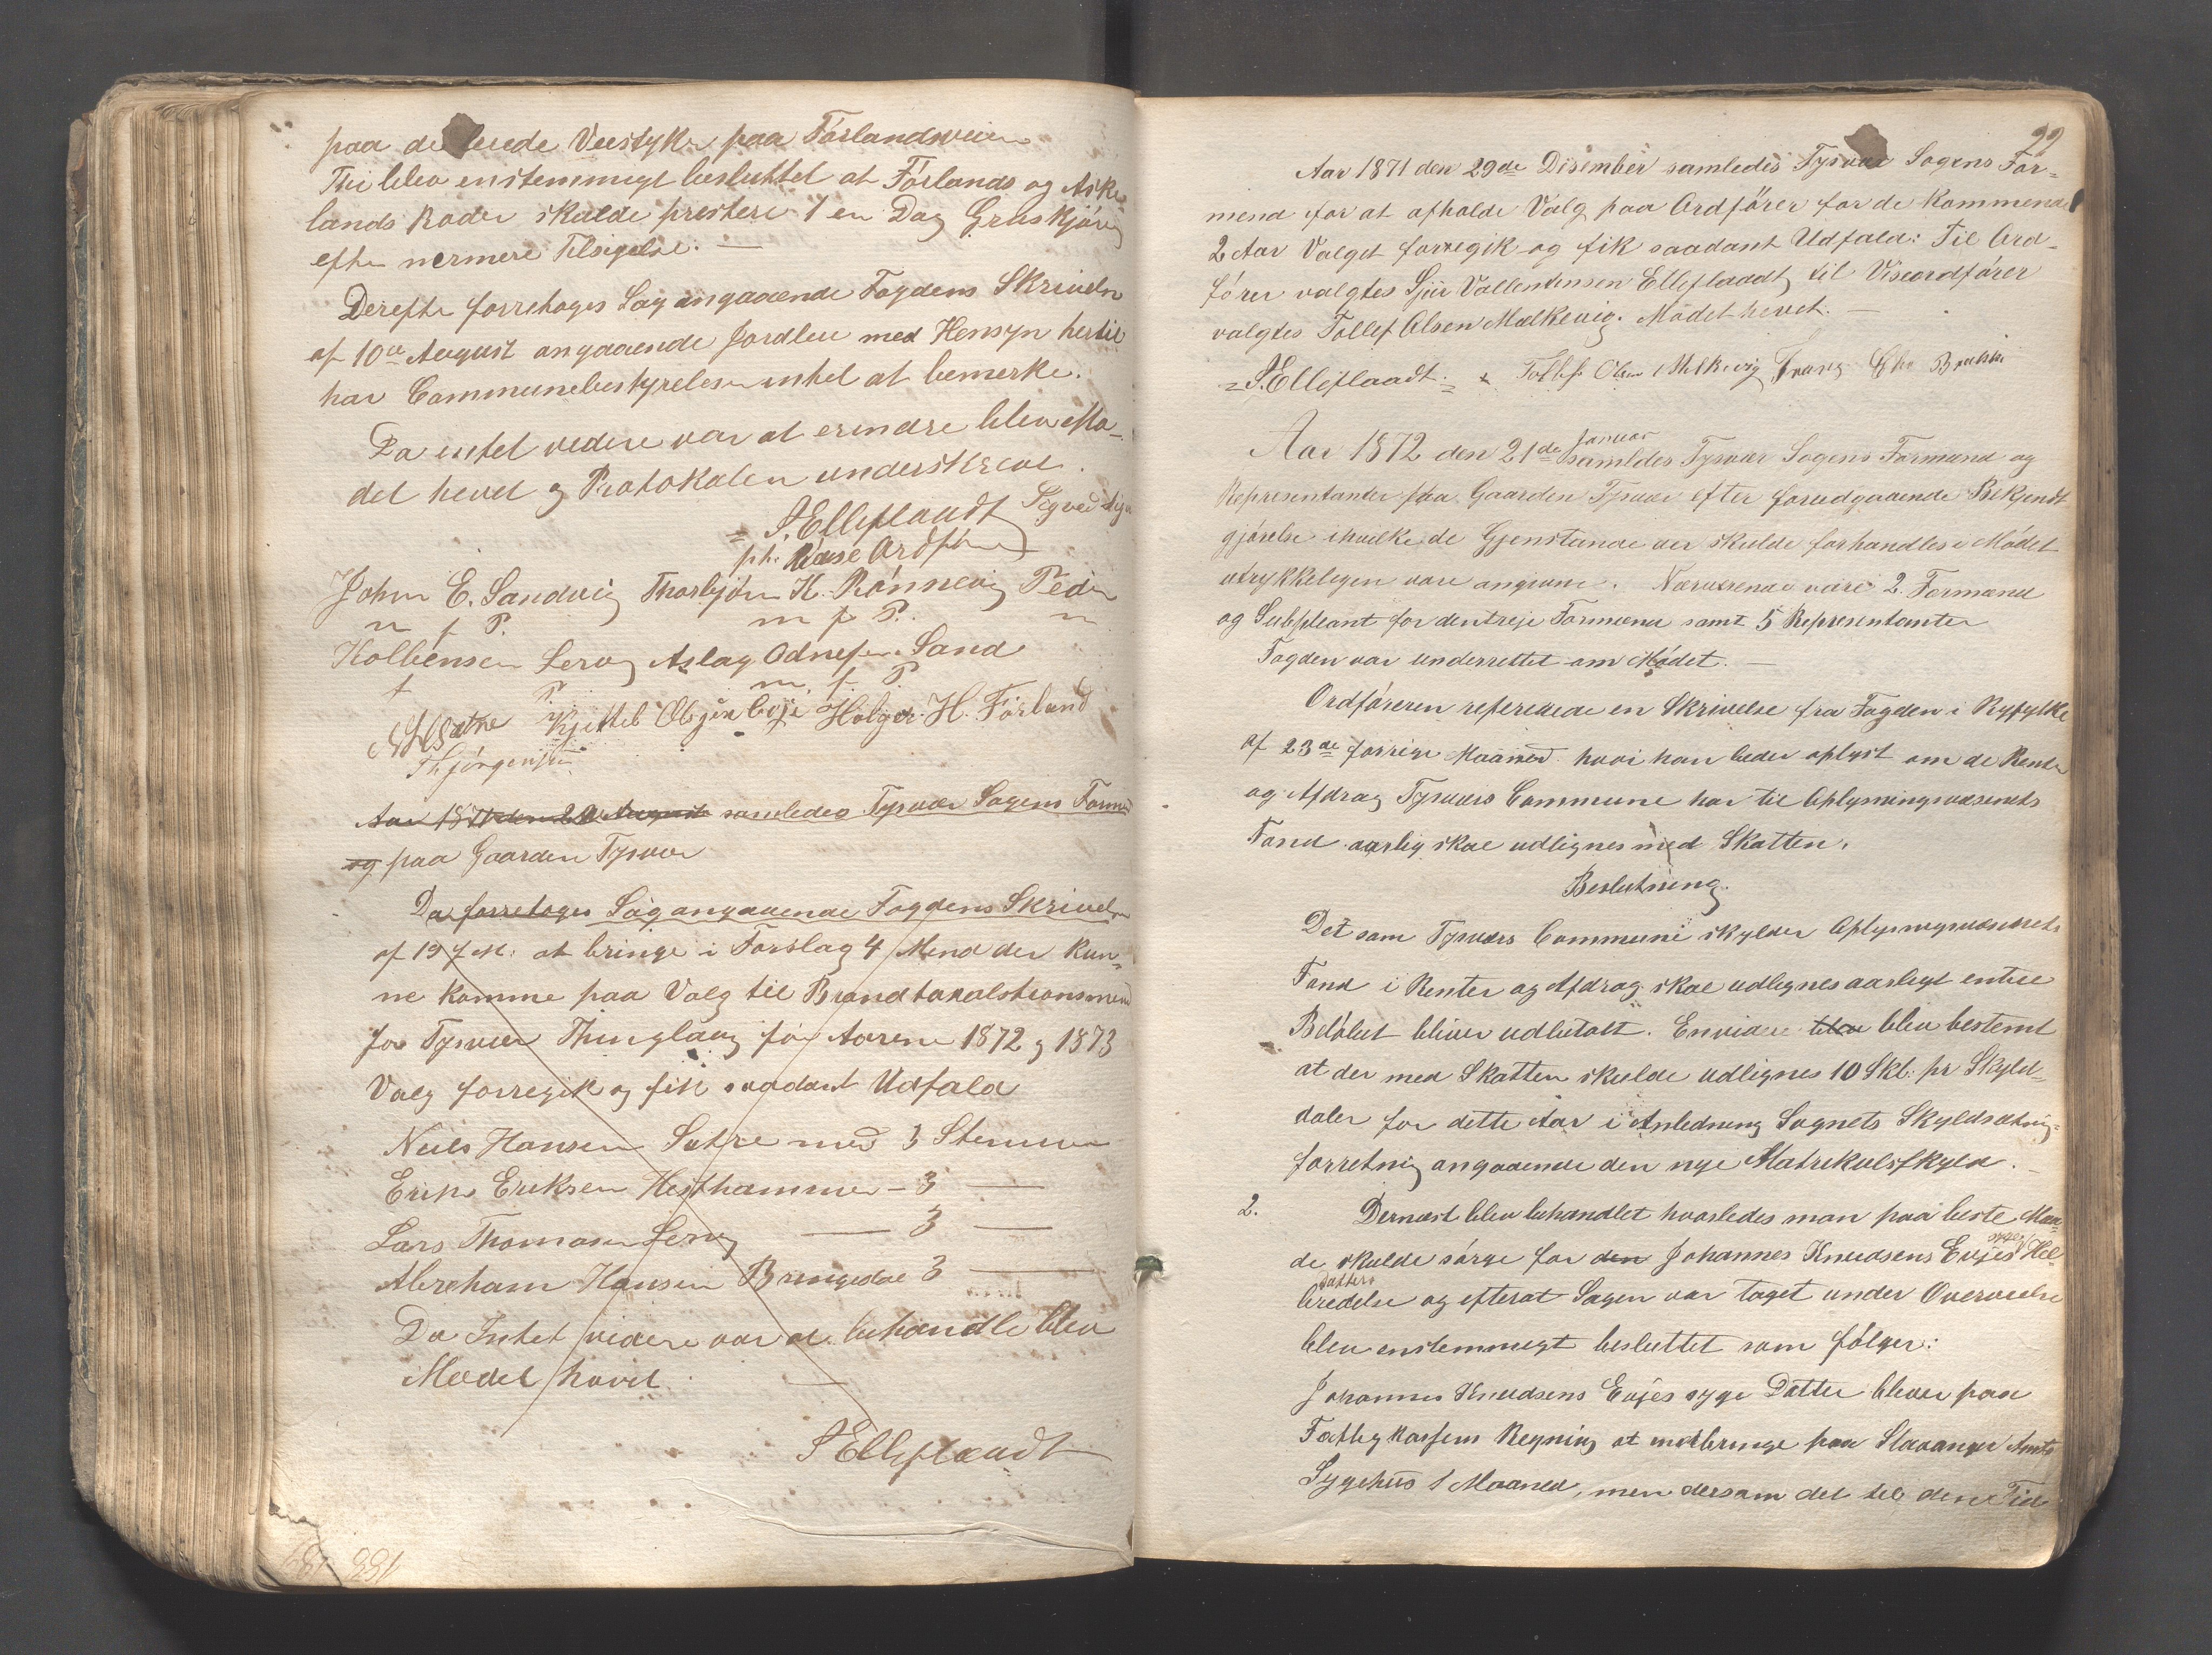 paa de Veistyke paa Førlandsveien
Thi blev enstemmigt besluttet at Førlands og Aske
lands Roder skulde prestere 1 en Dag Gruskjøring
efter nermere Tilsigelse. —
Derefter forretoges Sag angaaende Fogdens Skrivelse
af 10de August angaaende Jordleie med Hensyn hertil
har Communebestyrelsen intet at bemerke.
Da intet videre var at erindre blev Mø-
det hevet og Protokolen underskreve.
S. Elleflaadt
Ordfører
John E. Sandvig Thorbjørn K. Rønnevig Peder
m f P. m f P. m
Kolbensen Lervig Aslag Odnesen Sand
f P. m. f. P.
Kjettel Olsen Evje Holger H. Førland
Th Jørgensen
Aar 1871 den August samledes Tysvær Sogens Formend
og paa Gaarden Tysvær
Da forretoges Sag angaaende Fogdens Skrivelse
af 19 at bringe i Forslag 4 Mend der kun-
ne komme paa Valg til Brandtaxationsmend
for Tysvær Thinglaug for Aarene 1872 og 1873
Valg forregik og fik saadant Udfald
Neils Hansen Sætre med 3 Stemmer
Erik Eriksen Hesthammer — 3 —
Lars Thomasen Lervig — 3 —
Abreham Hansen Bringedal 3 —
Da Intet videre var at behandle blev
Mødet hevet
S Elleflaadt
99
Aar 1871 den 29de Disember samledes Tysvær Sogens For-
mend for at afholde Valg paa Ordfører for de kommende
2 Aar Valget forregik og fik saadant Udfald: Til Ord-
fører valgtes Sjur Vallentinsen Elleflaadt, til Viseordfører
valgtes Tollef Olsen Mælkevig. Mødet hevet. —
S. Elleflaadt. Tollef Olsen Melkevig
Januar
Aar 1872 den 21de samledes Tysvær Sogens Formænd og
Representanter paa Gaarden Tysvær efter forudgaaende Bekjendt
gjørelse i hvilke de Gjenstande der skulde forhandles i Mødet
utrykkeligen vare angivne. Nærværende vare 2. Formænd
og Subpleant for den treje Formænd samt 5 Representanter
Fogden var underrettet om Mødet. —
Ordføreren refererede en Skrivelse fra Fogden i Ryfylke
af 23de forrige Maaned hvori han beder oplyst om de Renter
og Afdrag Tysværs Commune har til Oplysningvæsenets
Fond aarlig skal udlignes med Skatten.
Beslutning.
Det som Tysvers Commune skylder Oplysningvæsenets
Fond i Renter og Afdrag skal udlignes aarligt entil
Beløbet bliver udbetalt. Envidere blev blev bestemt
at der med Skatten skulde udlignes 10 Skl. pr Skyld-
daler for dette Aar i Anledning Sognets Skyldsætnings-
forretning angaaende den nye Matrikulskyld. —
2. Dernæst blev behandlet hvorledes man paa beste Maa-
de skulde sørge for den Johannes Knudsens Evjes syge Hel-
Datters
bredelse og efterat Sagen var taget under Overveielse
blev enstemmigt besluttet som følger:
Johannes Knudsens Evjes syge Datter bliver paa
Fattigkassens Regning at indbringe paa Stavanger Amts
Sygehus 1 Maaned, men dersom det til den Tid